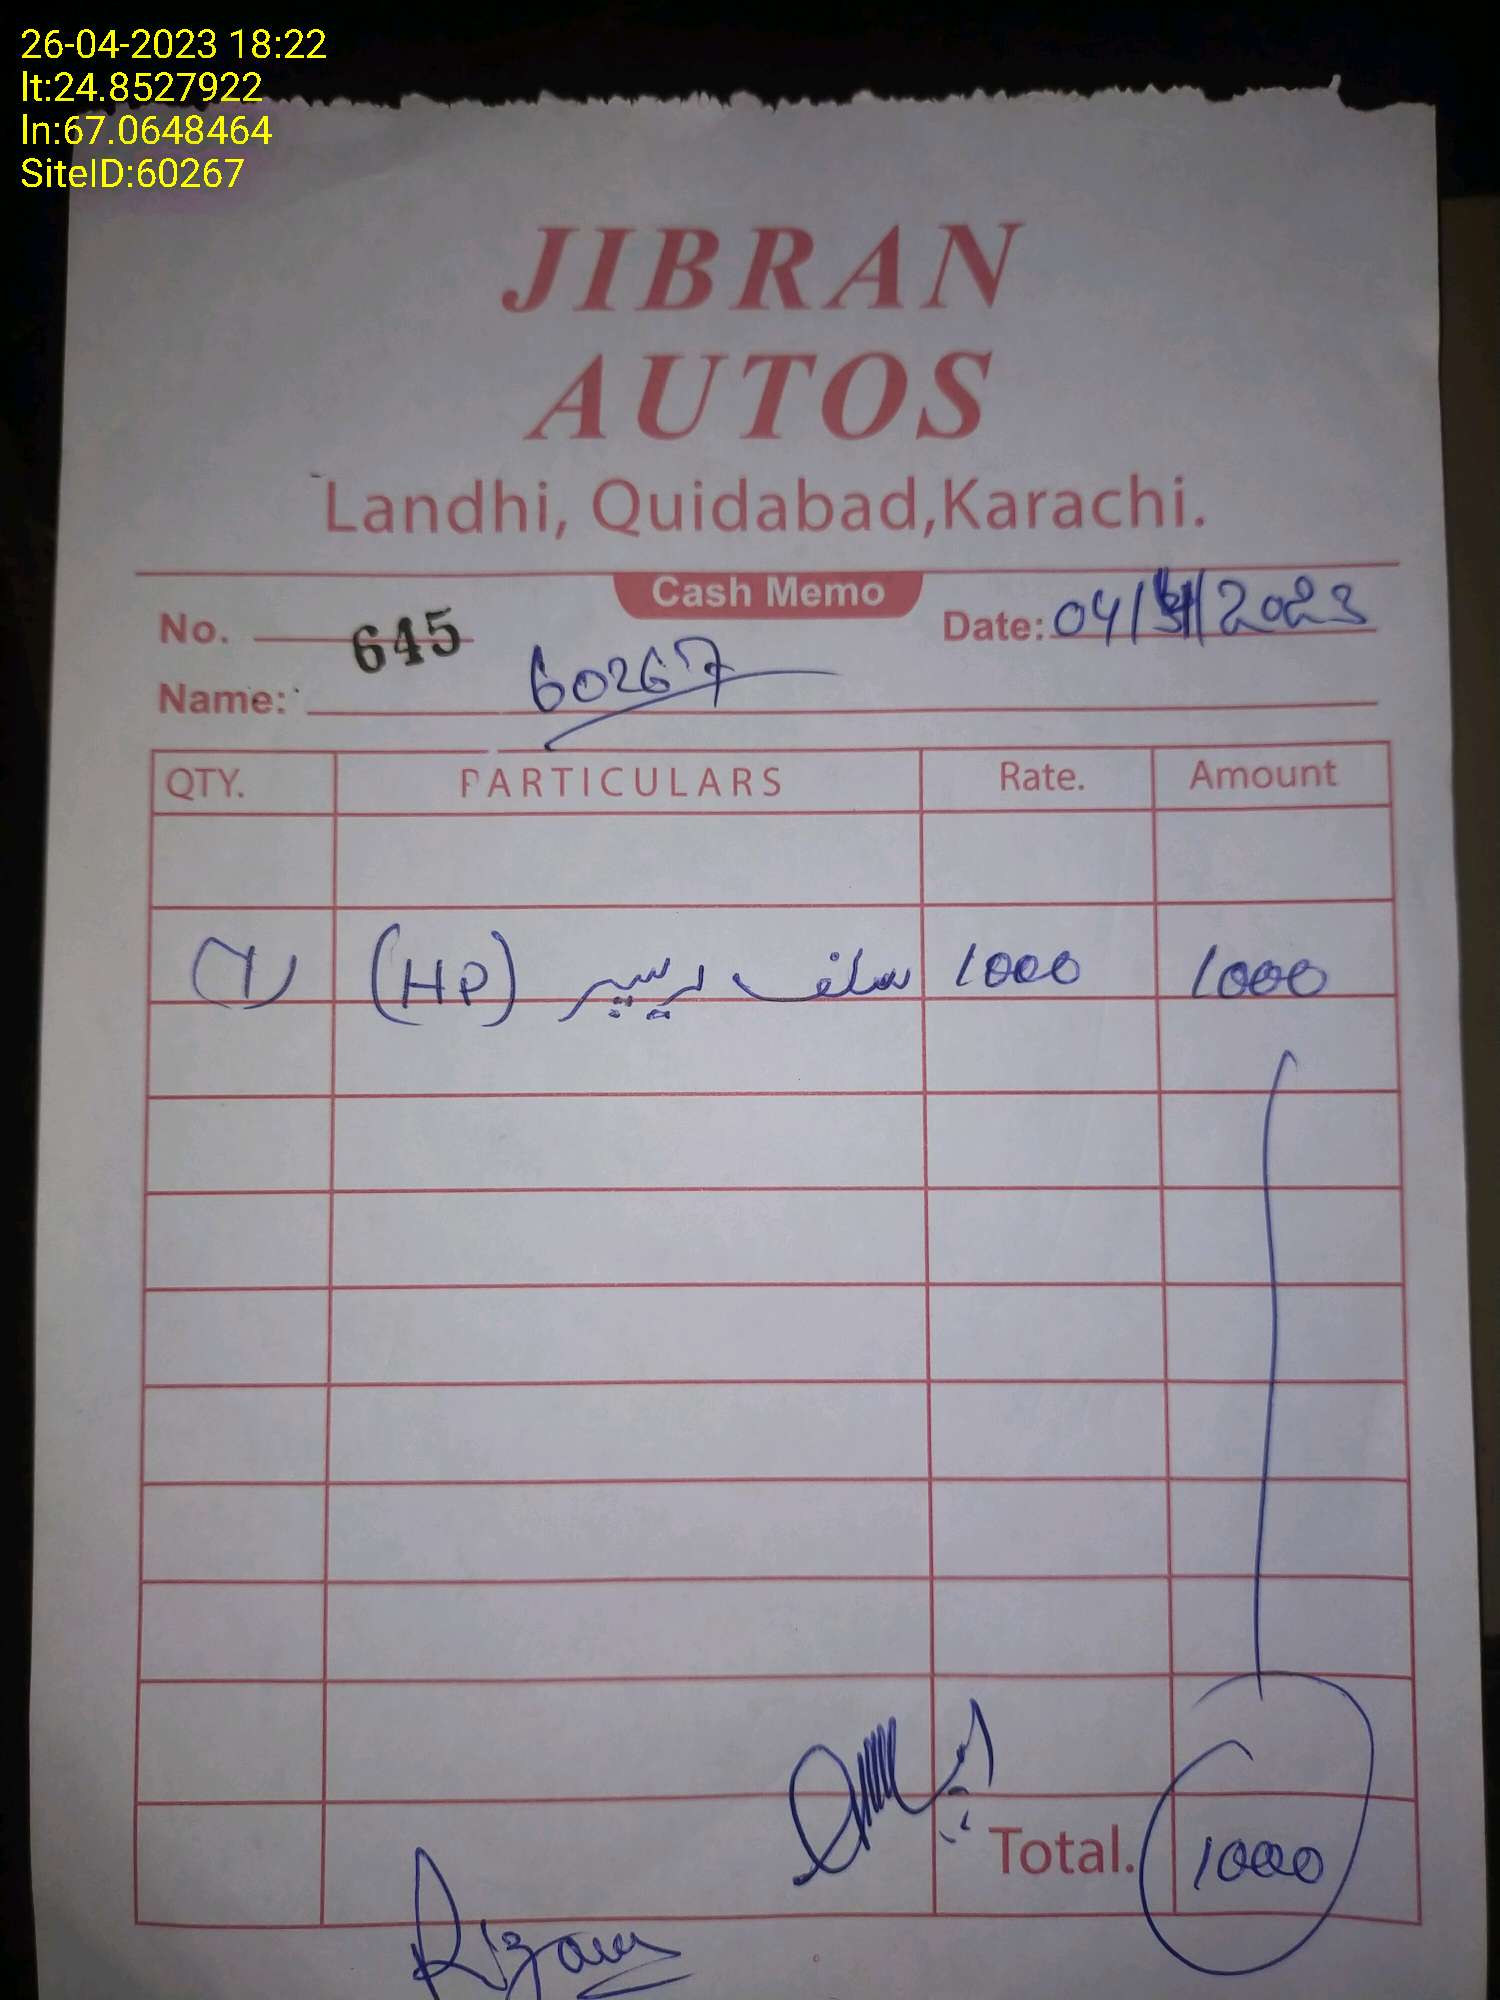 26-04-2023 18:22
lt:24.8527922
ln:67.0648464
SiteID:60267
JIBRAN
AUTOS
Landhi, Quidabad,Karachi.
Cash Memo
No. 645 Date: 04/ /2023
Name: 60267
QTY. PARTICULARS Rate. Amount
(1) سلف (HP) 1000 1000
Total. 1000